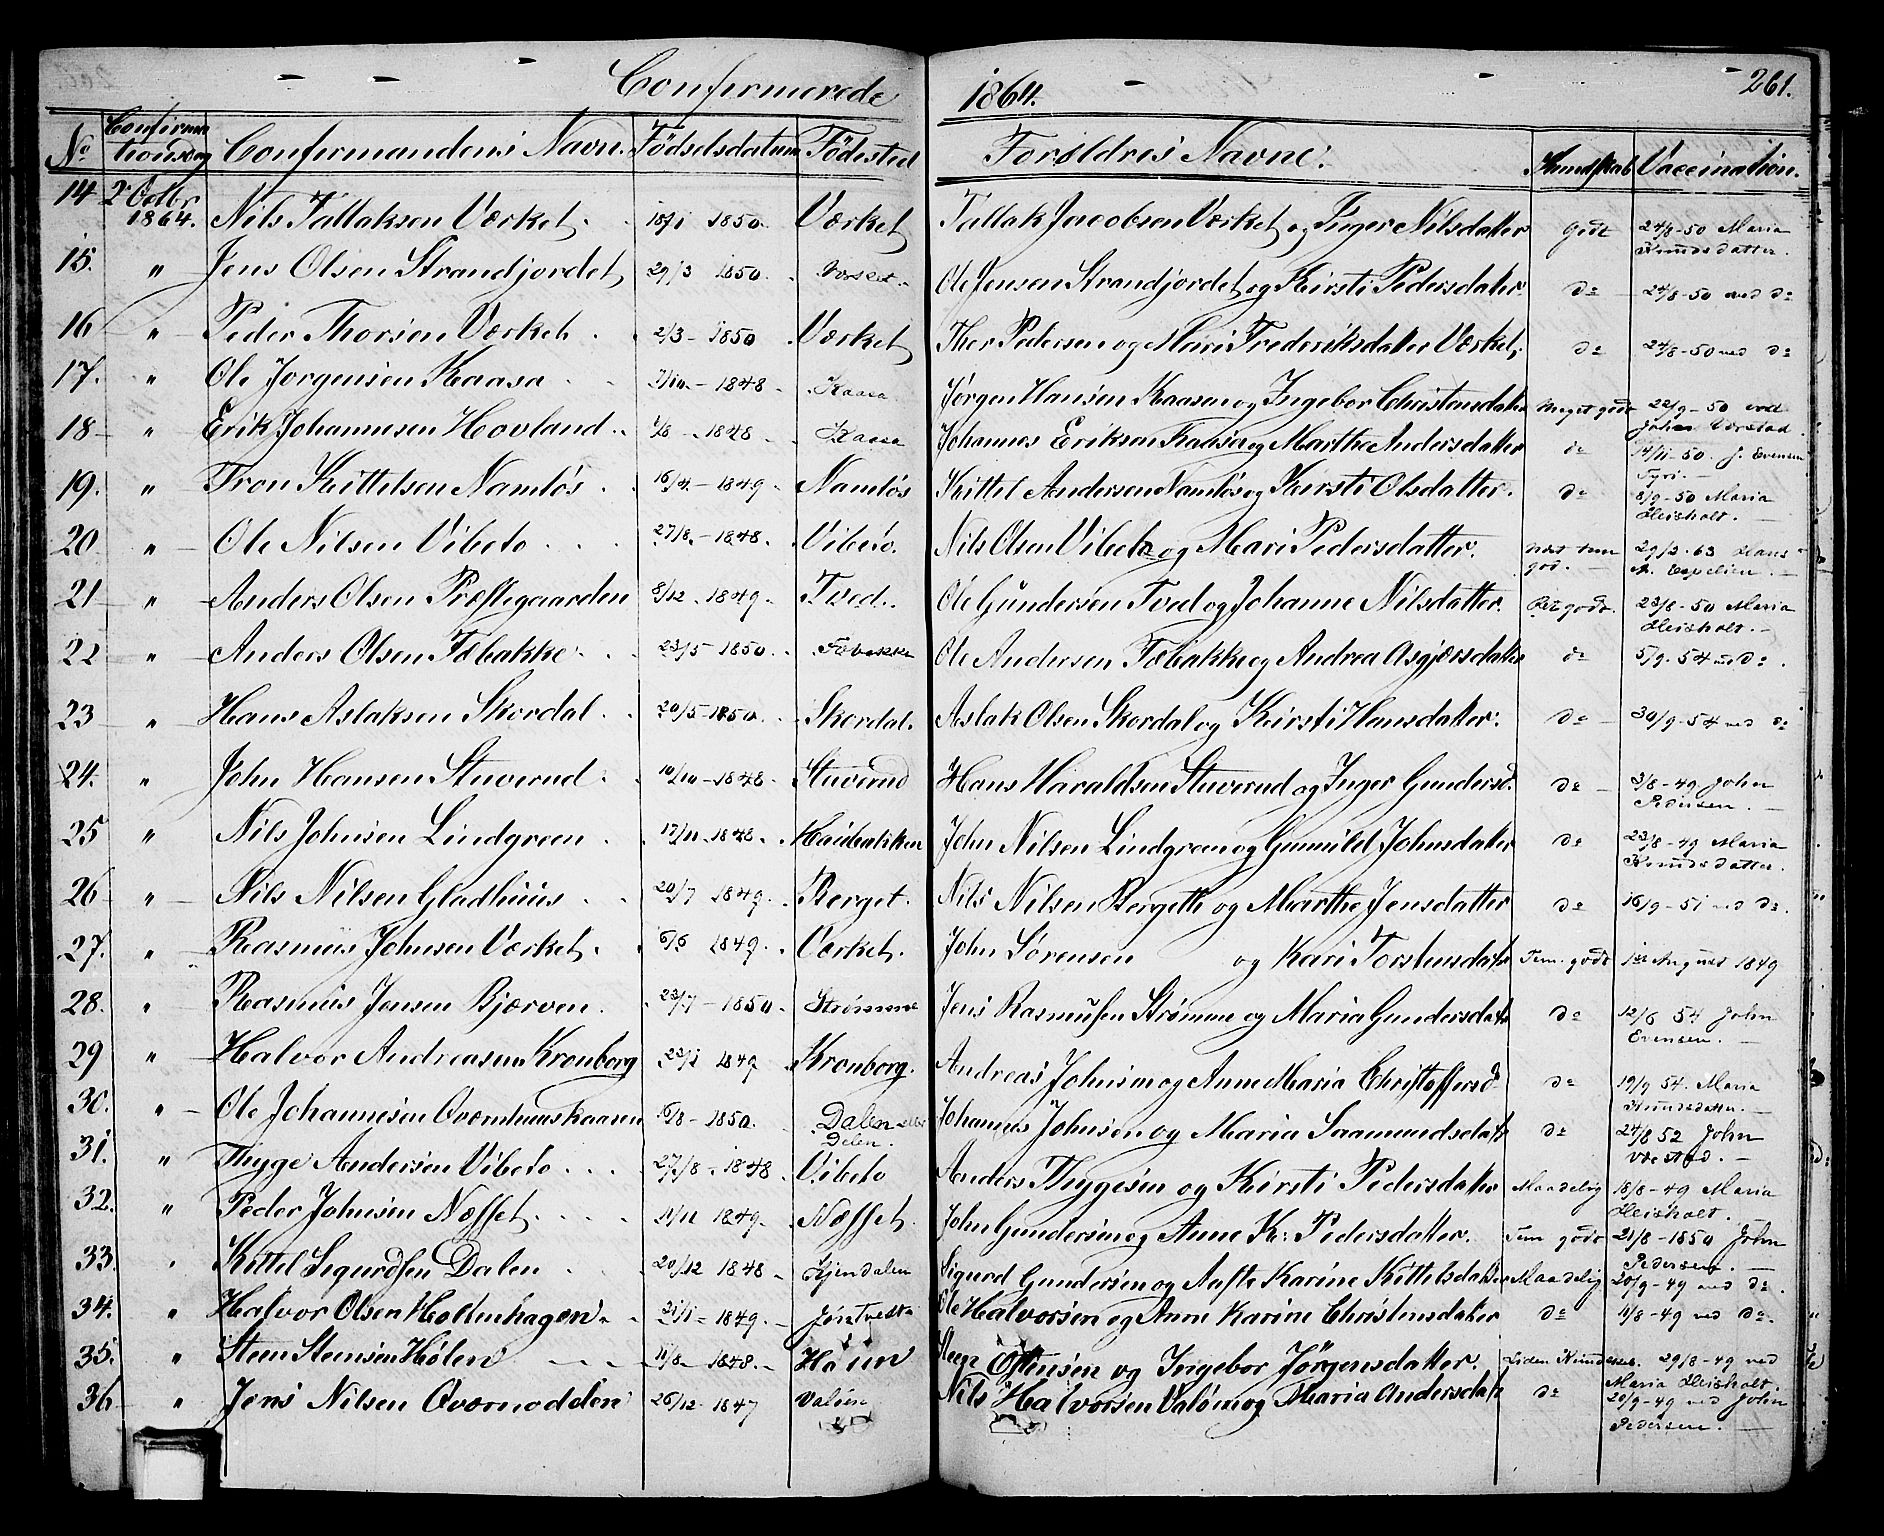 Confirmerede 1864. 261.
No Confirmationsdag Confirmandens Navn. Födselsdatum Födested Forældres Navne. Kundskab Vaccination.
14 2 Octbr 1864. Nils Tallaksen Værket. 1850. Værket Tallak Jacobsen Værket og Inger Nilsdatter godt 24/8-50 Maria Knudsdatter.
15. " Jens Olsen Strandjordet 29/3 1850. Ole Jensen Strandjordet og Kirsti Pedersdatter do 24/8-50 med do
16 " Peder Thorsen Værket. 2/3- 1850 Værket Thor Pedersen og Mari Frederiksdatter Værket, do 24/8-50 ved do
17. " Ole Jorgensen Kaasa 7/10- 1848 Kaasa Jørgen Hansen Kaasen og Ingebor Christensdatter Meget godt 22/9-50 ved John Værstad
18 " Erik Johannesen Hovland. 1/8 - 1848 Kaasa Johannes Eriksen Kaasa og Marthe Andersdatter do 14/11-50. J. Evensen Tyri.
19. " Tron Kittelsen Namløs. 16/4- 1849 Namløs Kittel Andersen Namløs og Kirsti Olsdatter. do 8/9-50 Maria Heisholt.
20 " Ole Nilsen Vibeto 27/8- 1848. Vibeto. Nils Olsen Vibeto og Mari Pedersdatter. god. 29/3-63 Hans A. Espelien.
21 " Anders Olsen Præstegaarden 8/12 - 1849. Tved. Ole Gundersen Tved og Johanne Nilsdatter. godt. 23/8-50 Maria Heisholt.
22 " Anders Olsen Fæbakke 23/5 1850. Fæbakke Ole Andersen Fæbakke og Andrea Asgjærsdatter do 5/9-54 med do.
23 " Hans Aslaksen Skordal. 20/5-1850. Skordal. Aslak Olsen Skordal og Kirsti Hansdatter. do 30/9-54 ved do
24. " John Hansen Stuverud. 10/10-1848. Stuverud Hans Haraldsen Stuverud og Inger Gundersd. do 3/8-49 John Pedersen.
25 " Nils Johnsen Lindgreen 17/11-1848. Haibakken John Nilsen Lindgreen og Gunnild Johnsdatter do 23/8-49 Maria Knudsdatter.
26 " Nils Nilsen Gladhuus 20/7 1849. Berget. Nils Nilsen Bergeth og Marthe Jensdatter do 16/9-51 ved do.
27. " Rasmus Johnsen Værket. 6/5 1849. Værket. John Sørensen og Kari Torstensdatr Tem. godt 1ste August 1849
28. " Rasmus Jensen Bjærven. 23/7- 1850. Strømme Jens Rasmussen Strømme og Maria Gundersdatr do 12/6 54 John Evensen.
29 " Halvor Andreasen Kronborg 23/1 1849 Kronborg. Andreas Johnsen og Anne Maria Christoffersd do 19/9 54. Maria Knudsdatter.
30. " Ole Johannesen Overnhuuskaasen 16/8- 1850. Dalen eller Delen. Johannes Johnsen og Maria Saamundsdatr do 24/8 52 John Værstad.
31. " Thyge Andersen Vibeto 27/8. 1848. Vibeto Anders Thygesen og Kirsti Pedersdatter Maadelig 18/8-49 Maria Heisholt.
32. " Peder Johnsen Næsset. 11/12 1849. Næsset. John Gundersen og Anne K: Pedersdatter. Tem godt 21/8-1850 John Pedersen.
33. " Kittel Sigurdsen Dalen 20/12 1848 Gjendalen Sigurd Gundersen og Aaste Karine Kittelsdatter Maadelig 20/9-49 ved do.
34. " Halvor Olsen Holkenhagen 21/1- 1849. Ole Halvorsen og Anne Karine Christensdatter do 11/8-49 ved do.
35. " Steen Steensen Hølen 11/8- 1848. Haun Ottensen og Ingebor Jørgensdatter. Liden Kundskab. 29/8-49 ved Maria Heisholt.
36 " Jens Nilsen Overnodden 26/12 1847 Valöen Nils Halvorsen Valöen og Maria Andersdatr do 20/9-49 ved John Pedersen.